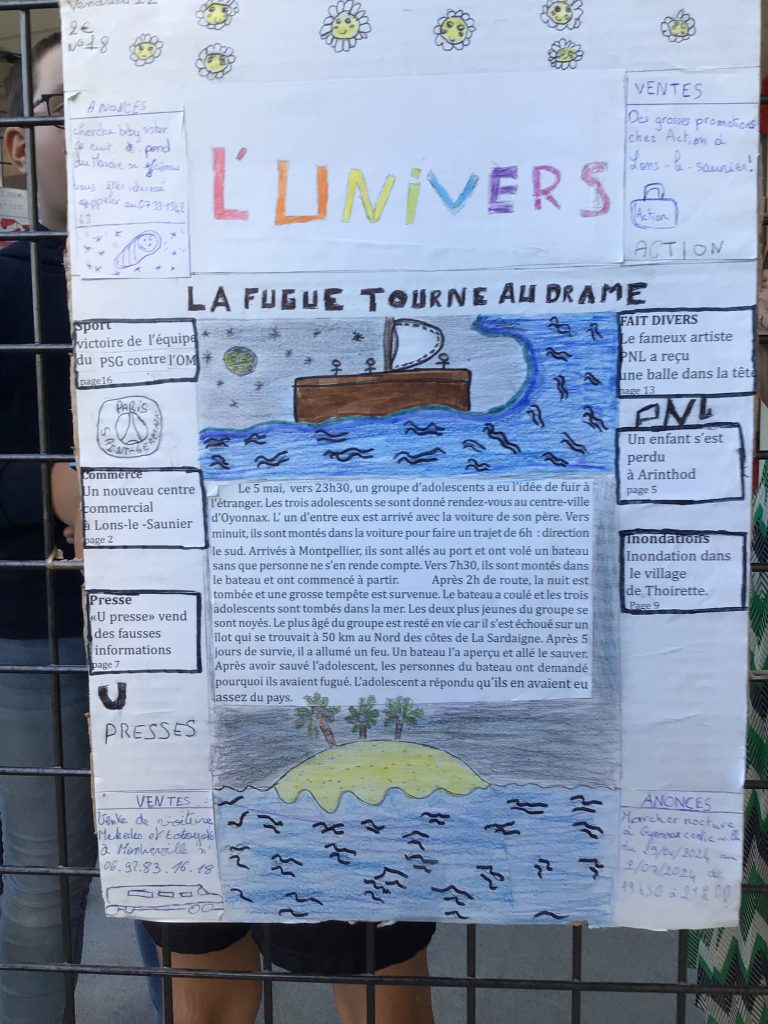 Vendredi 22
2€
N°18
ANONCES
cherche biby sister
de nuit
vous êtes
appeler au 07 33 1342
63
L'UNIVERS
VENTES
Des grosses promotions
chez Action à
Lons-le-saunier!
Action
ACTION
LA FUGUE TOURNE AU DRAME
Sport
victoire de l'équipe
du PSG contre l'OM
page16
PARIS
SAINT-GERMAIN
Commerce
Un nouveau centre
commercial
à Lons-le -Saunier
page 2
Presse
«U presse» vend
des fausses
informations
page 7
U
PRESSES
VENTES
Vente de voiture
à
06.92.83.16.18
Le 5 mai, vers 23h30, un groupe d'adolescents a eu l'idée de fuir à
l'étranger. Les trois adolescents se sont donné rendez-vous au centre-ville
d'Oyonnax. L' un d'entre eux est arrivé avec la voiture de son père. Vers
minuit, ils sont montés dans la voiture pour faire un trajet de 6h : direction
le sud. Arrivés à Montpellier, ils sont allés au port et ont volé un bateau
sans que personne ne s'en rende compte. Vers 7h30, ils sont montés dans
le bateau et ont commencé à partir. Après 2h de route, la nuit est
tombée et une grosse tempête est survenue. Le bateau a coulé et les trois
adolescents sont tombés dans la mer. Les deux plus jeunes du groupe se
sont noyés. Le plus âgé du groupe est resté en vie car il s'est échoué sur un
îlot qui se trouvait à 50 km au Nord des côtes de La Sardaigne. Après 5
jours de survie, il a allumé un feu. Un bateau l'a aperçu et allé le sauver.
Après avoir sauvé l'adolescent, les personnes du bateau ont demandé
pourquoi ils avaient fugué. L'adolescent a répondu qu'ils en avaient eu
assez du pays.
FAIT DIVERS
Le fameux artiste
PNL a reçu
une balle dans la tête
page 13
PNL
Un enfant s'est
perdu
à Arinthod
page 5
Inondations
Inondation dans
le village
de Thoirette.
Page 9
ANONCES
Marcher nocture
à Oyonnax centre ville
du au
2/07/2024 de
19h30 à